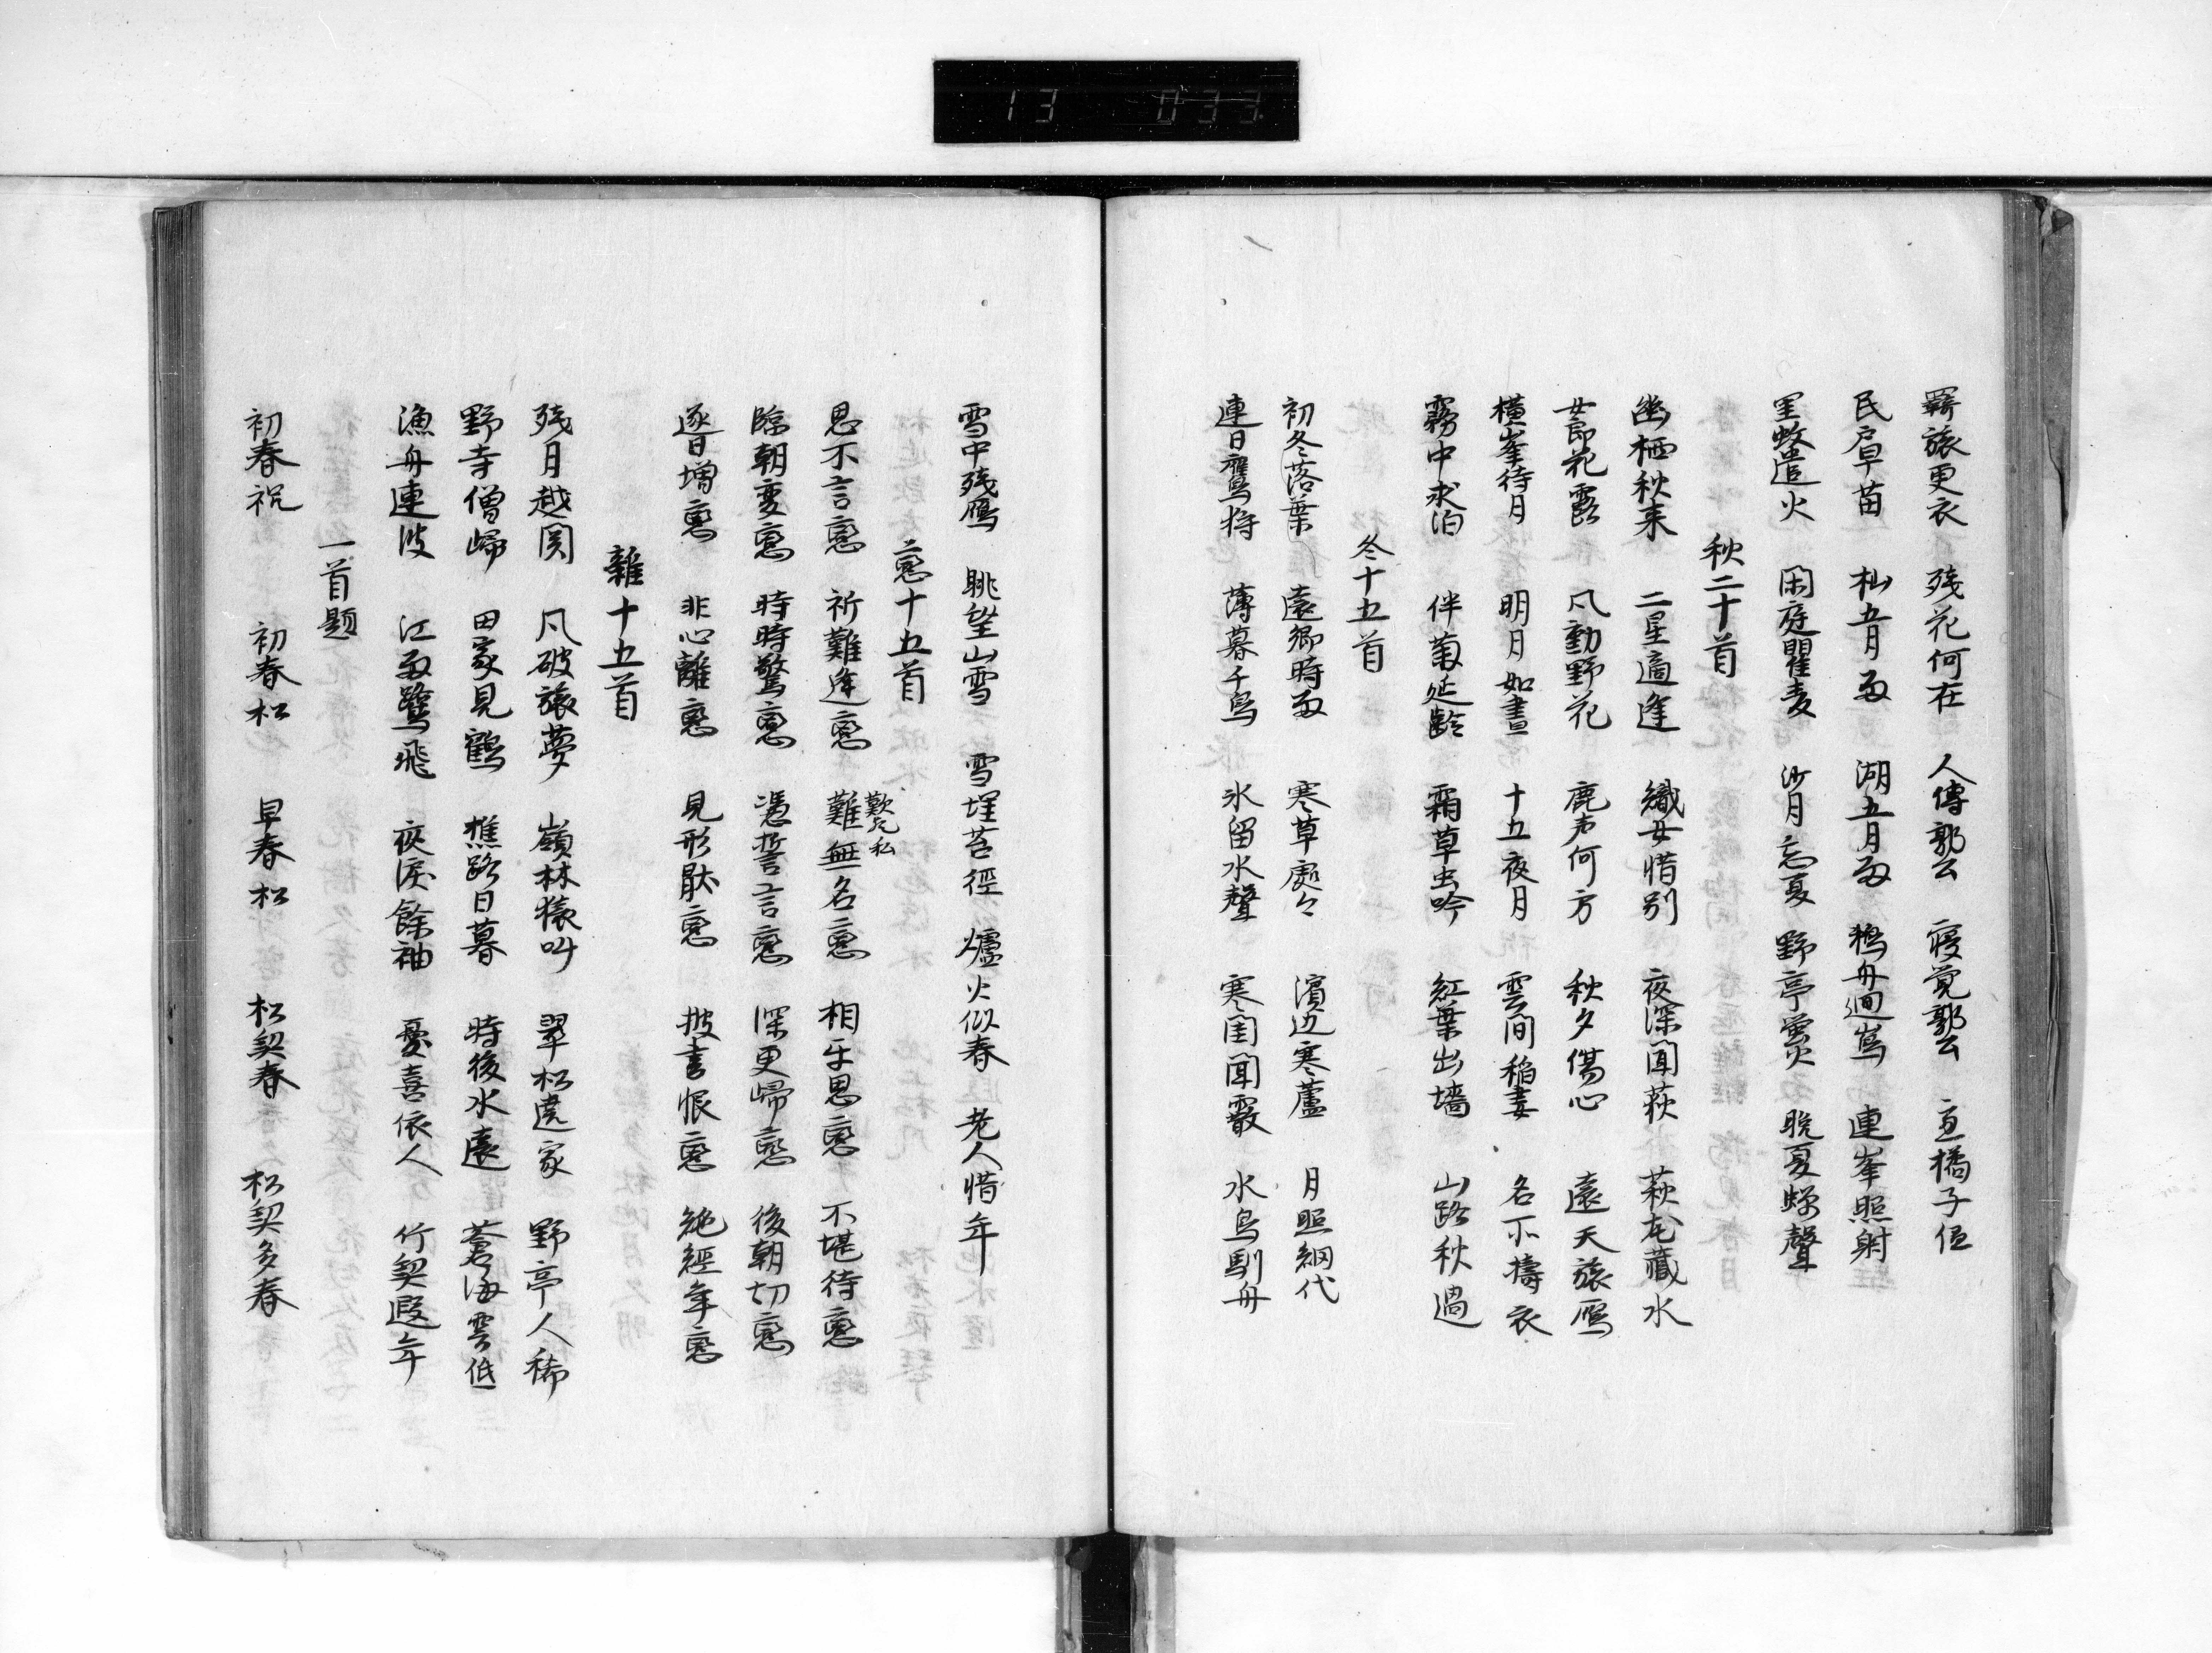 13 033
羇旅更衣 残花何在 人傳郭公 寝覚郭公 盧橘子低
民戸早苗 杣五月雨 湖五月雨 鵜舟廻嶌 連峯照射
里蚊遣火 閑庭瞿麦 沙月忘夏 野亭螢火 晩夏蝉聲
秋二十首
幽栖秋来 二星適逢 織女惜別 夜深聞荻 萩花蔵水
女郎花露 风動野花 鹿声何方 秋夕傷心 遠天旅鴈
横峯待月 明月如晝 十五夜月 雲間稲妻 名所擣衣
霧中求泊 伴菊延齢 霜草虫吟 紅葉出墻 山路秋過
冬十五首
初冬落葉 遠郷時雨 寒草處々 濱辺寒蘆 月照網代
連日鷹狩 薄暮千鳥 氷留水聲 寒閨聞霰 水鳥馴舟
雪中残鴈 眺望山雪 雪埋苔徑 爐火似春 老人惜年
戀十五首
思不言戀 祈難逢戀 難無名戀 相互思戀 不堪待戀
歎
私
臨朝変戀 時時驚戀 憑誓言戀 深更歸戀 後朝切戀
逐日増戀 非心離戀 見形厭戀 披書恨戀 絶經年戀
雜十五首
残月越関 风破旅夢 嶺林猿叫 翠松遶家 野亭人稀
野寺僧歸 田家見鶴 樵路日暮 時後水遠 蒼海雲低
漁舟連波 江雨鷺飛 夜涙餘袖 憂喜依人 竹契遐年
一首題
初春祝 初春松 早春松 松契春 松契多春